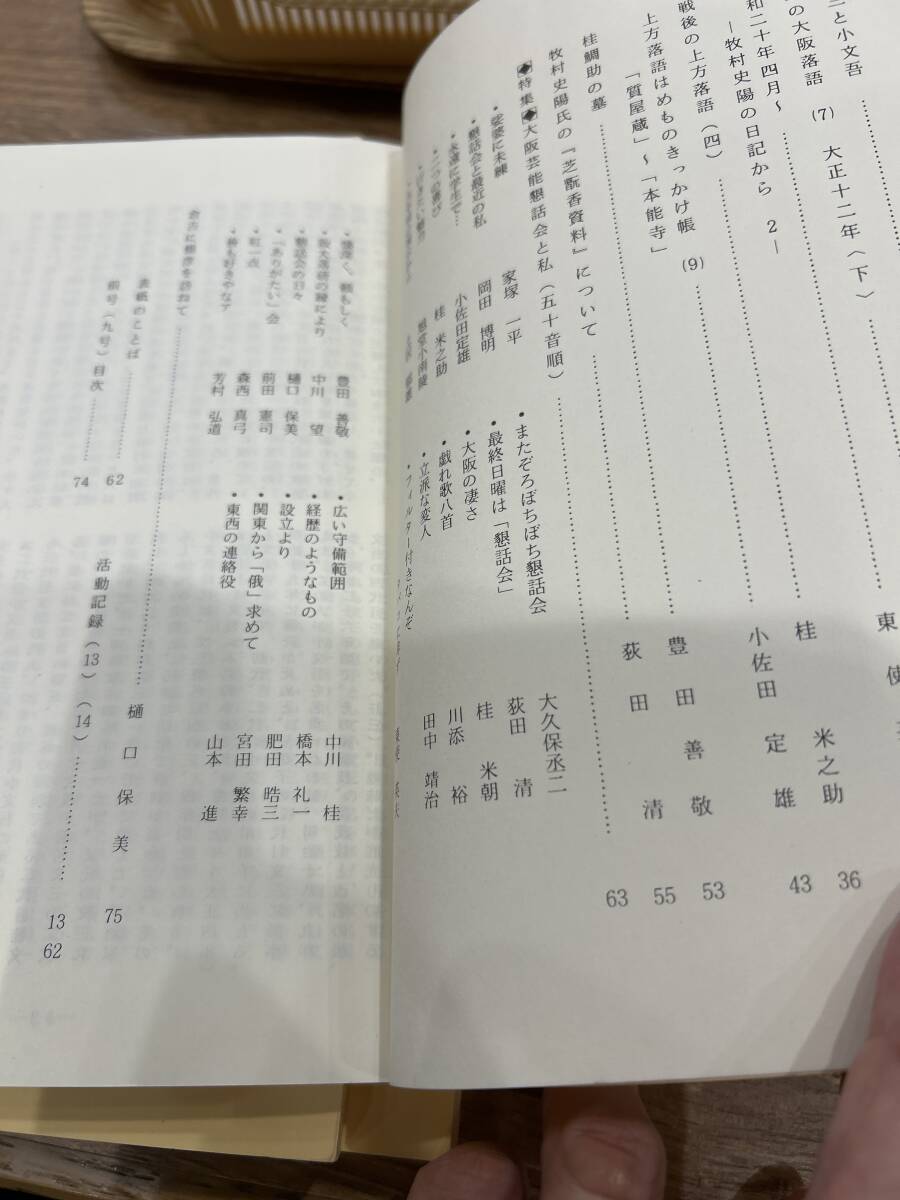 三と小文吾
東 使
の大阪落語 (7) 大正十二年〈下〉
和二十年四月～
―牧村史陽の日記から 2―
桂 米之助 36
戦後の上方落語(四)
小佐田 定雄 43
上方落語はめものきっかけ帳 (9)
「質屋蔵」～「本能寺」
桂鯛助の墓
豊田 善敬 53
55
牧村史陽氏の『芝翫香資料』について
荻田 清 63
◆特集◆大阪芸能懇話会と私(五十音順)
・娑婆に未練 家塚 一平
・またぞろぼちぼち懇話会 大久保丞二
・懇話会と最近の私 岡田 博明
・最終日曜は「懇話会」 荻田 清
・永遠に学生で… 小佐田定雄
・大阪の凄さ 桂 米朝
・二つの喜び 桂 米之助
・戯れ歌八首 川添 裕
旭堂小南陵
・立派な変人 田中 靖治
・フィルター付きなんぞ
・懐深く、頼もしく 豊田 善敬
・広い守備範囲 中川 桂
・阪大落研の縁により 中川 望
・経歴のようなもの 橋本 礼一
・懇話会の日々 樋口 保美
・設立より 肥田 晧三
・「ありがたい」会 前田 憲司
・関東から「俄」求めて 宮田 繁幸
・紅一点 森西 真弓
・東西の連絡役 山本 進
・根も好きやなァ 芳村 弘道
樋口 保美 75
表紙のことば 62
活動記録(13)(14) 13 62
前号(九号)目次 74